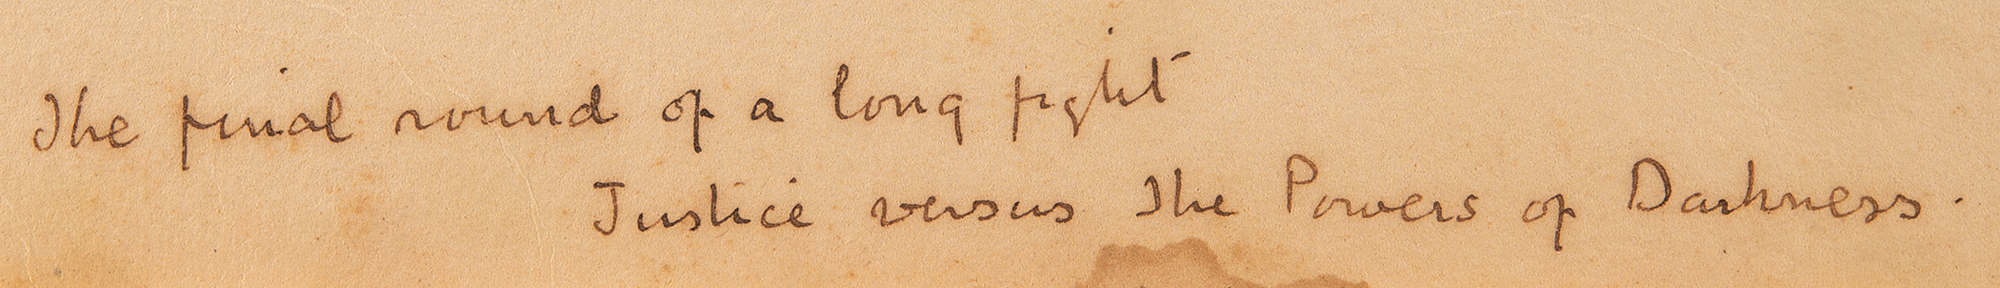 The final round of a long fight
Justice versus The Powers of Darkness.